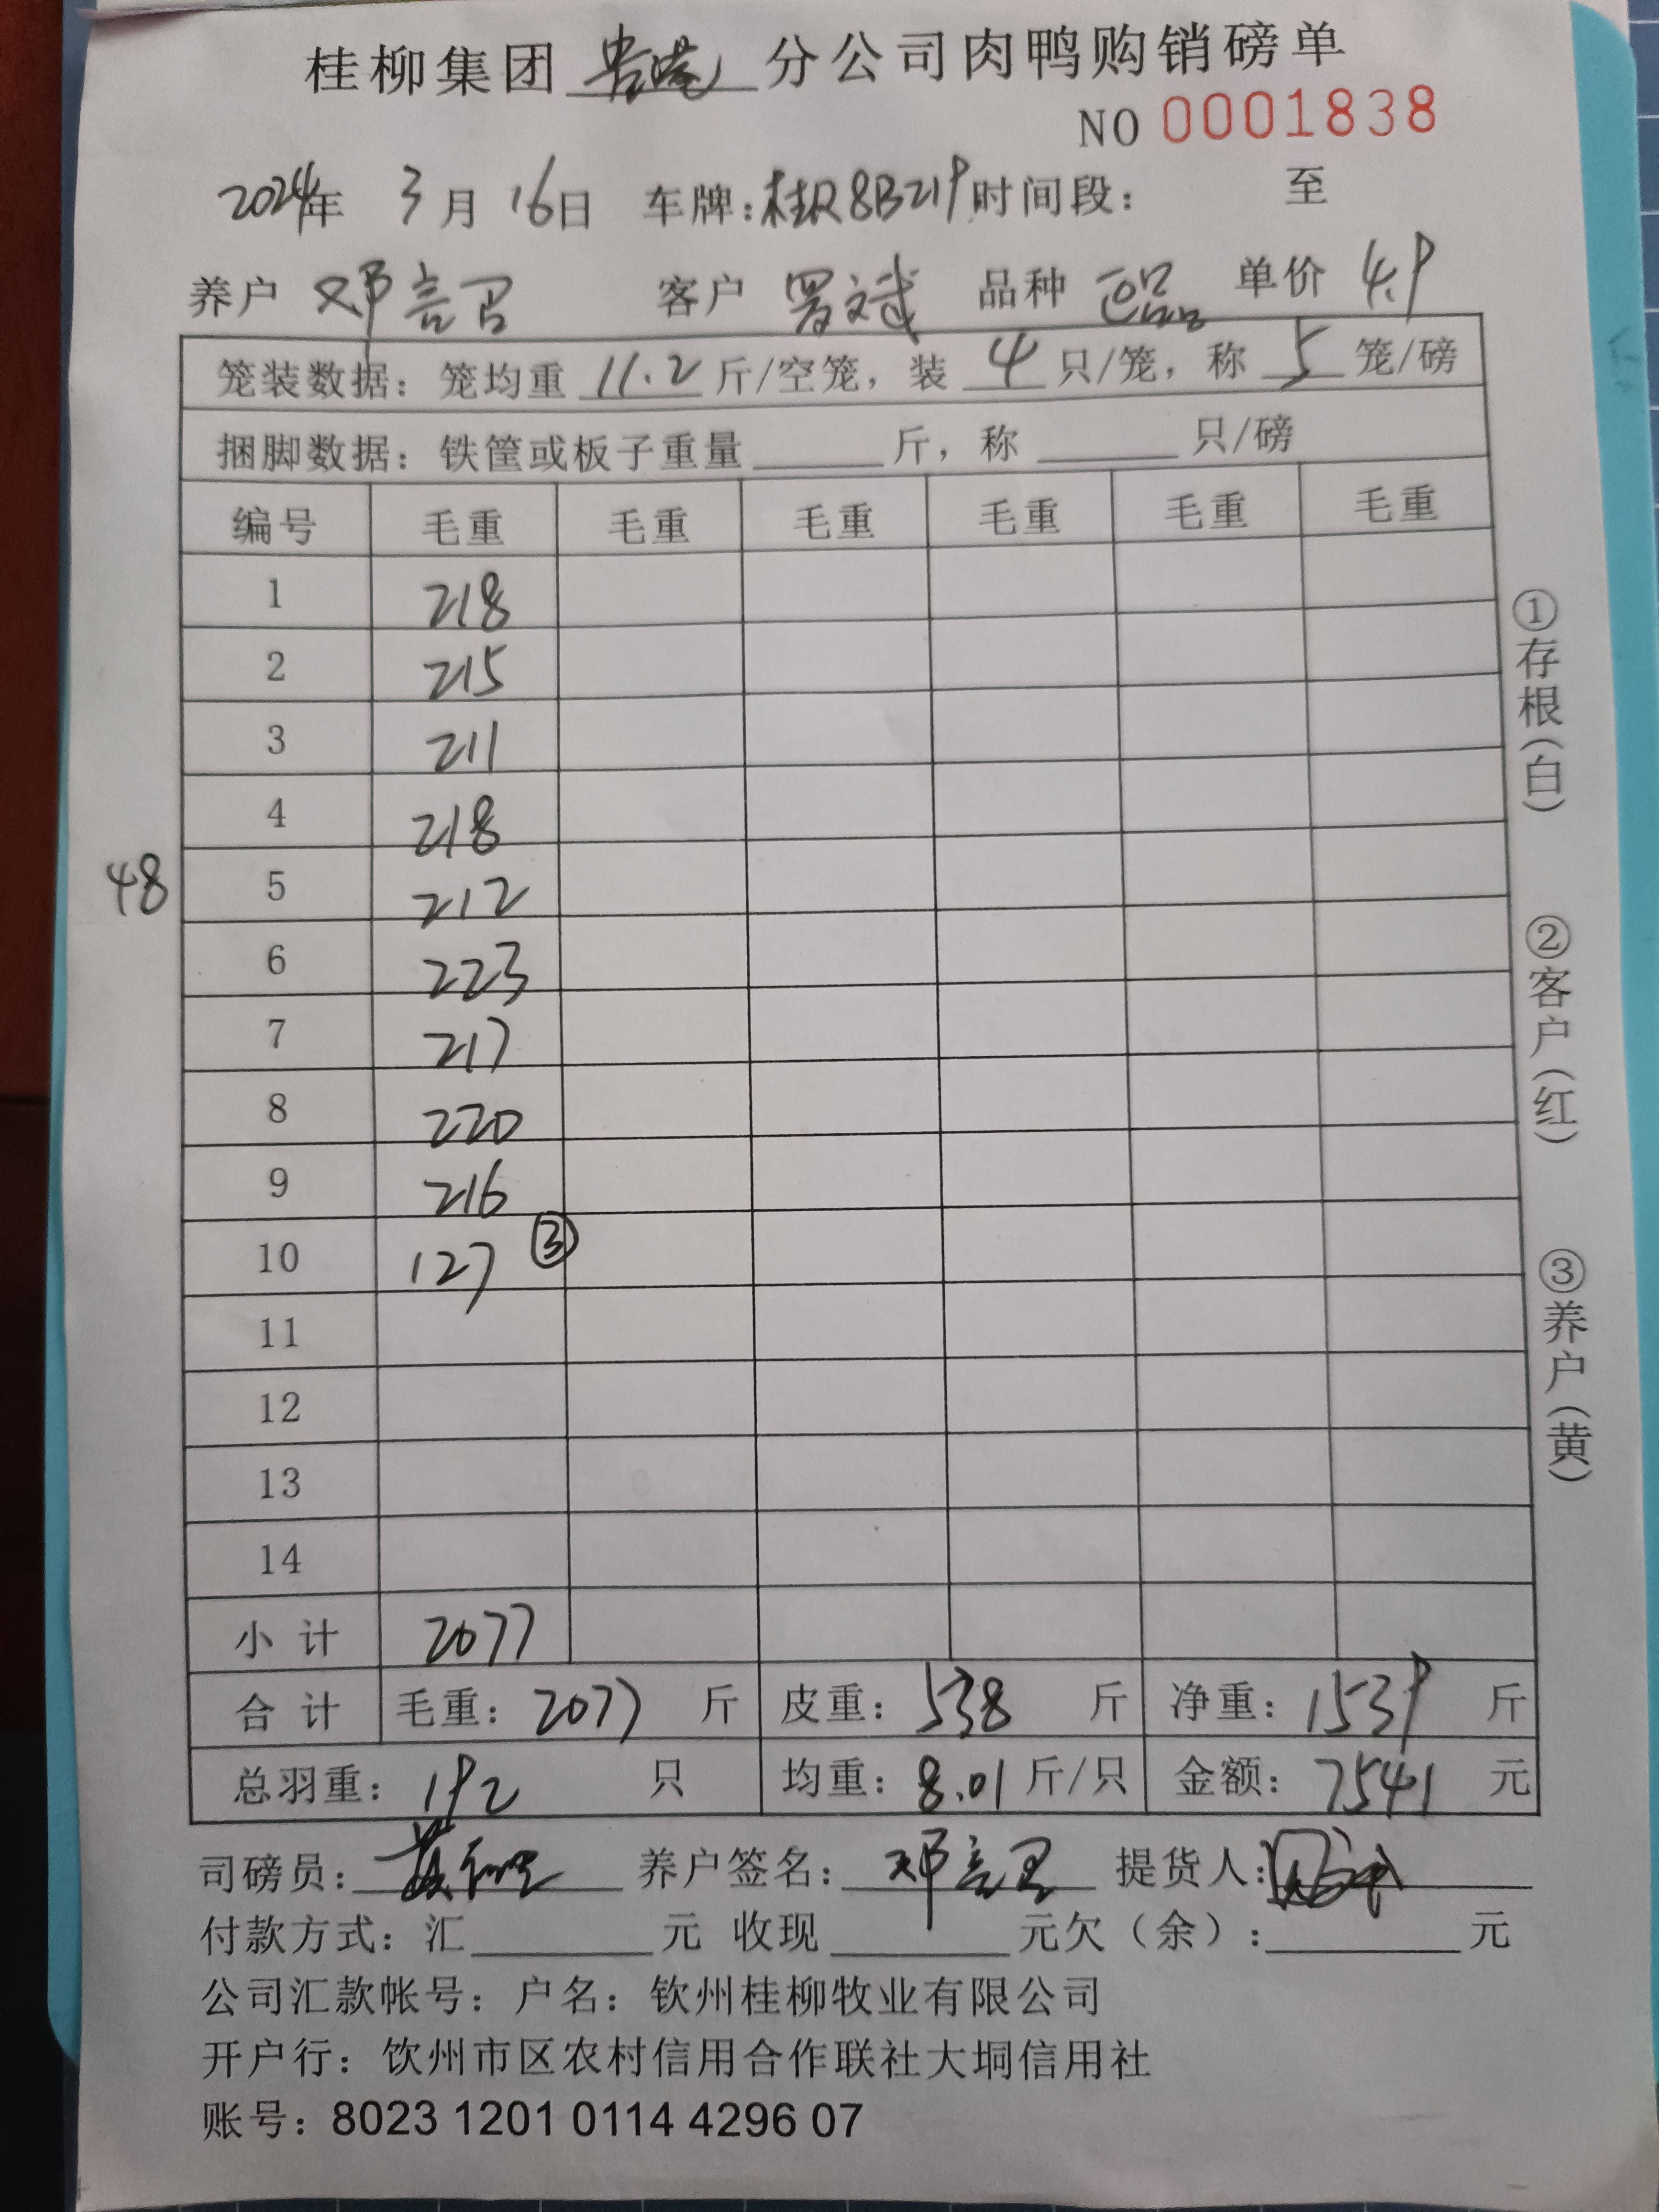 桂柳集团贵港分公司肉鸭购销磅单
NO 0001838
2024年 3月 16日 车牌:桂R8B219 时间段: 至
养户 邓亮召 客户 罗斌 品种 正品 单价 4.9
笼装数据: 笼均重 11.2 斤/空笼, 装 4 只/笼, 称 5 笼/磅
捆脚数据: 铁筐或板子重量 斤, 称 只/磅
编号 毛重 毛重 毛重 毛重 毛重 毛重
1 218
2 215
3 211
4 218
48
5 212
6 223
7 217
8 220
9 216
10 127 ③
11
12
13
14
小 计 2077
合 计 毛重: 2077 斤 皮重: 538 斤 净重: 1539 斤
总羽重: 192 只 均重: 8.01 斤/只 金额: 7541 元
司磅员: 养户签名: 邓亮召 提货人:
付款方式: 汇 元 收现 元欠(余): 元
公司汇款帐号: 户名: 钦州桂柳牧业有限公司
开户行: 钦州市区农村信用合作联社大垌信用社
账号: 8023 1201 0114 4296 07
①存根(白)
②客户(红)
③养户(黄)